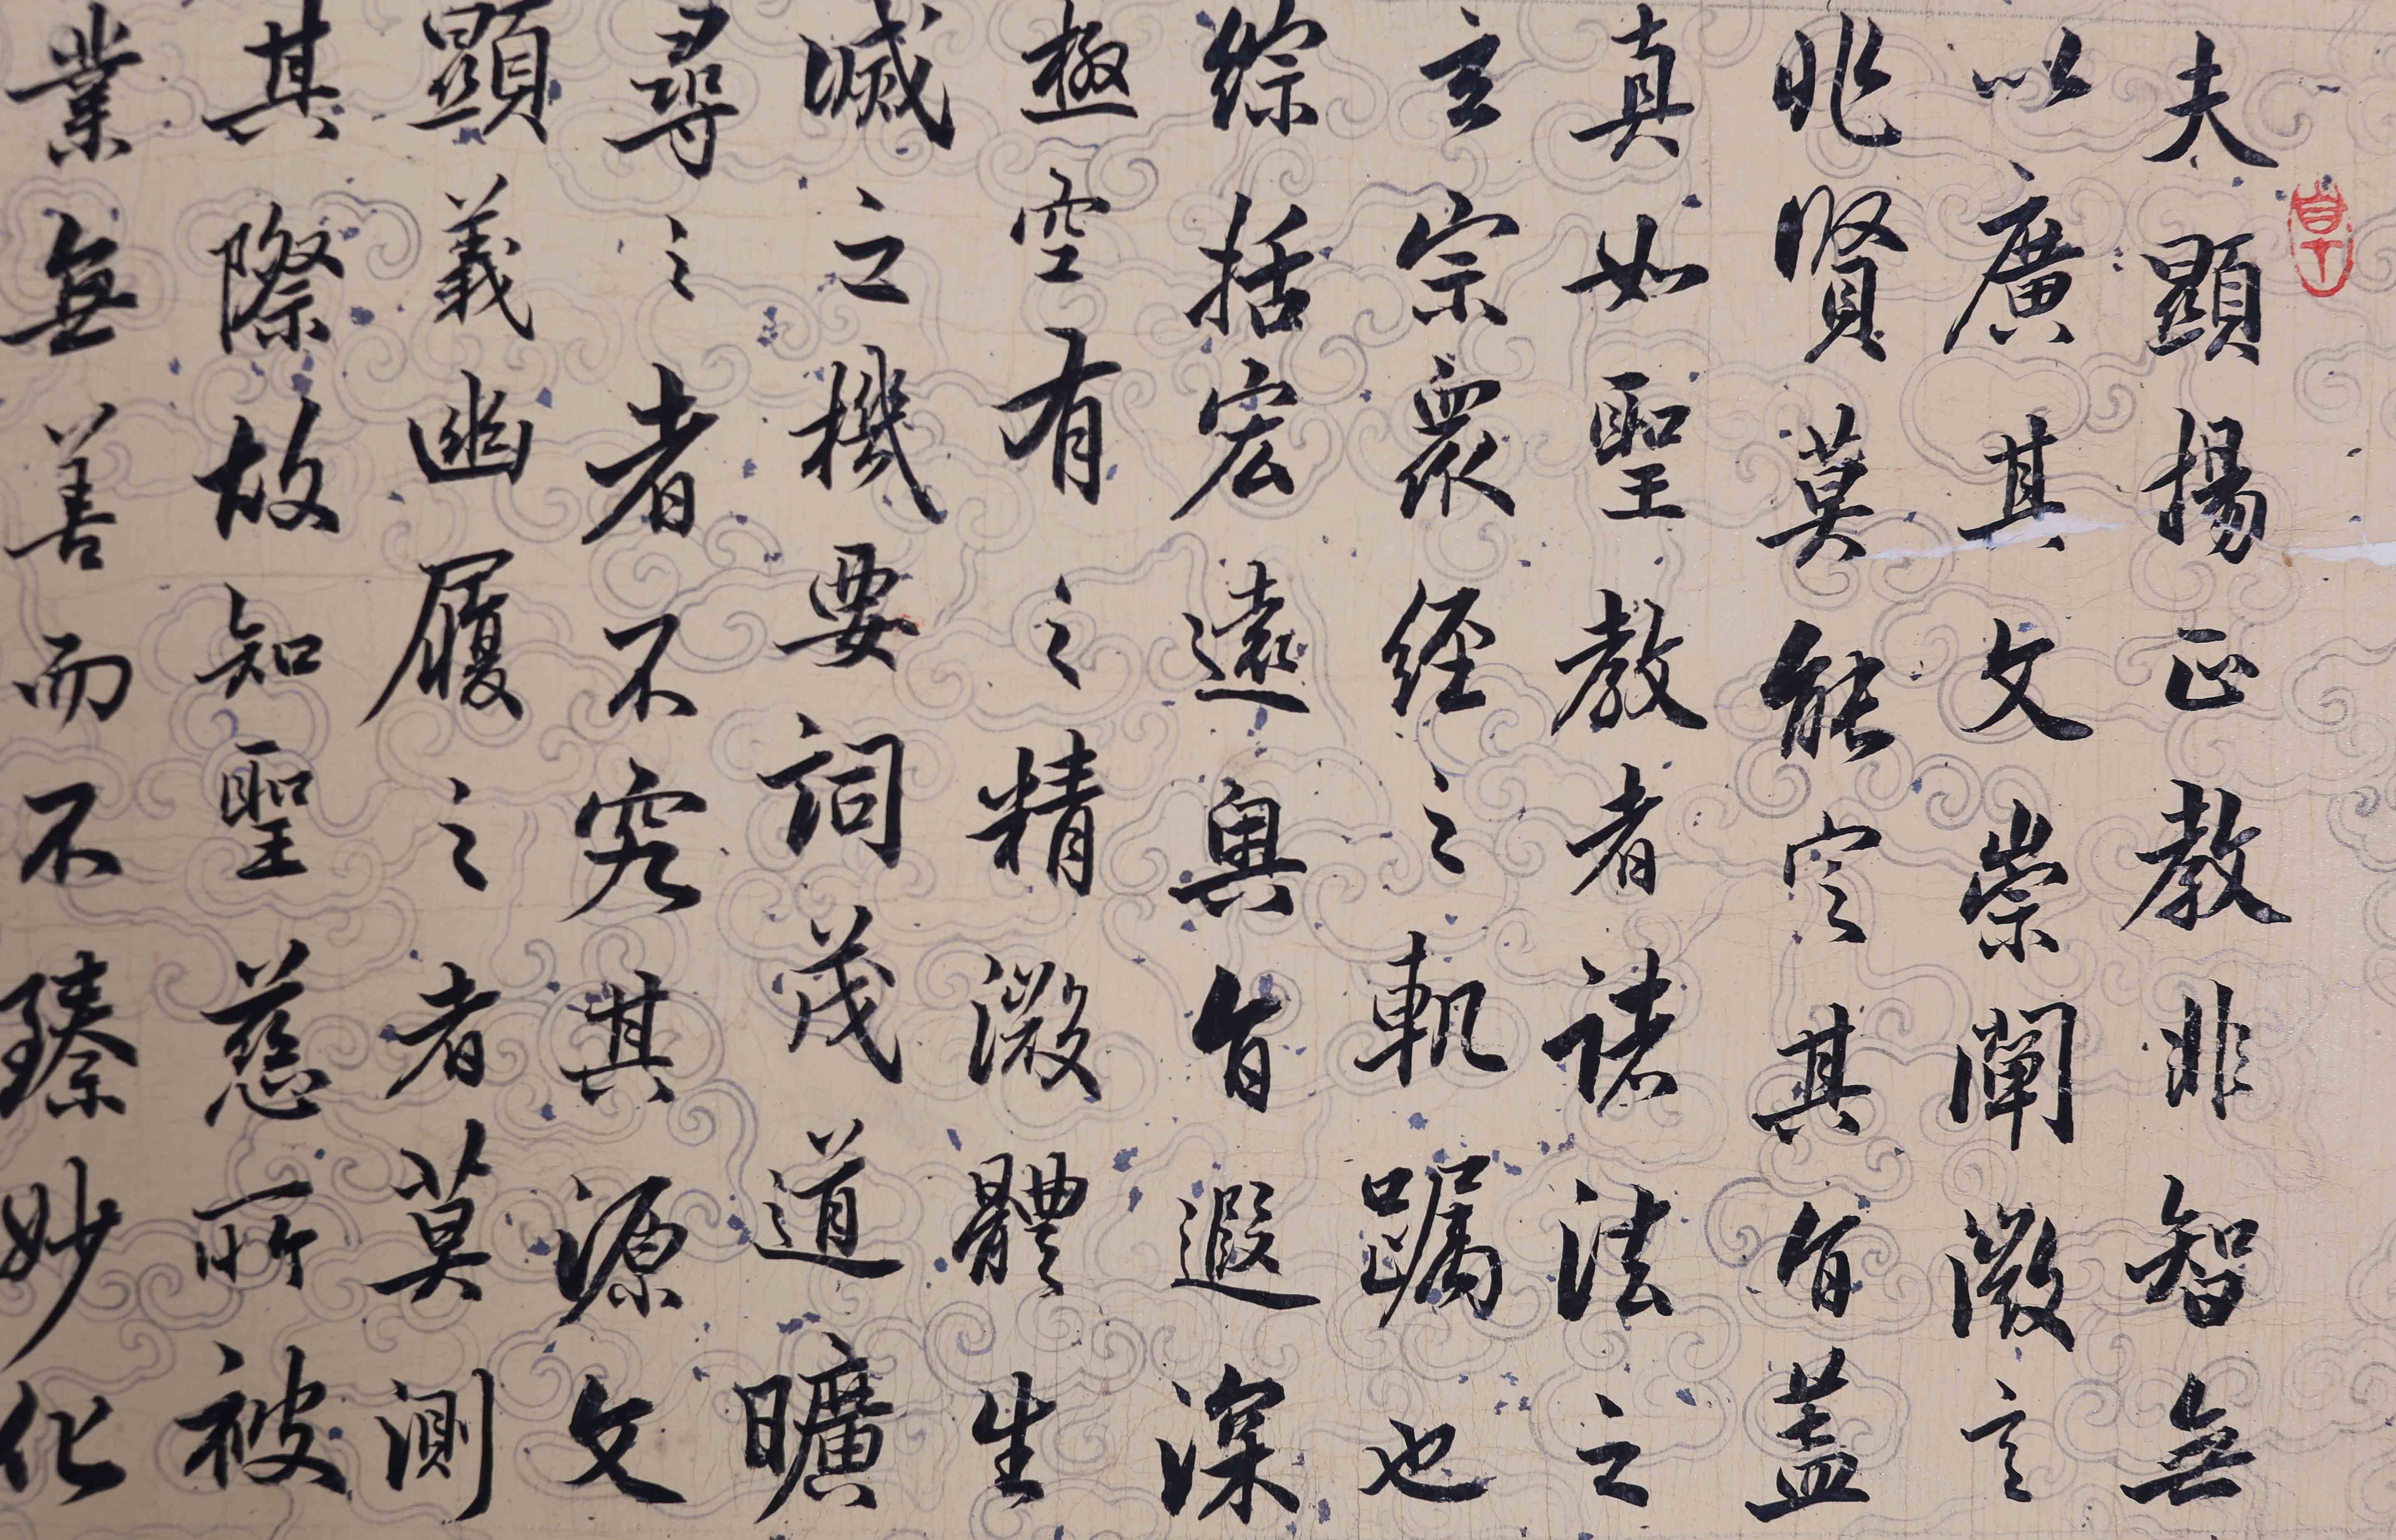 夫顯揚正教非智無
以廣其文崇闡微言
非賢莫能定其旨蓋
真如聖教者諸法之
玄宗眾經之軌躅也
綜括宏遠奧旨遐深
極空有之精微體生
滅之機要詞茂道曠
尋之者不究其源文
顯義幽履之者莫測
其際故知聖慈所被
業無善而不臻妙化